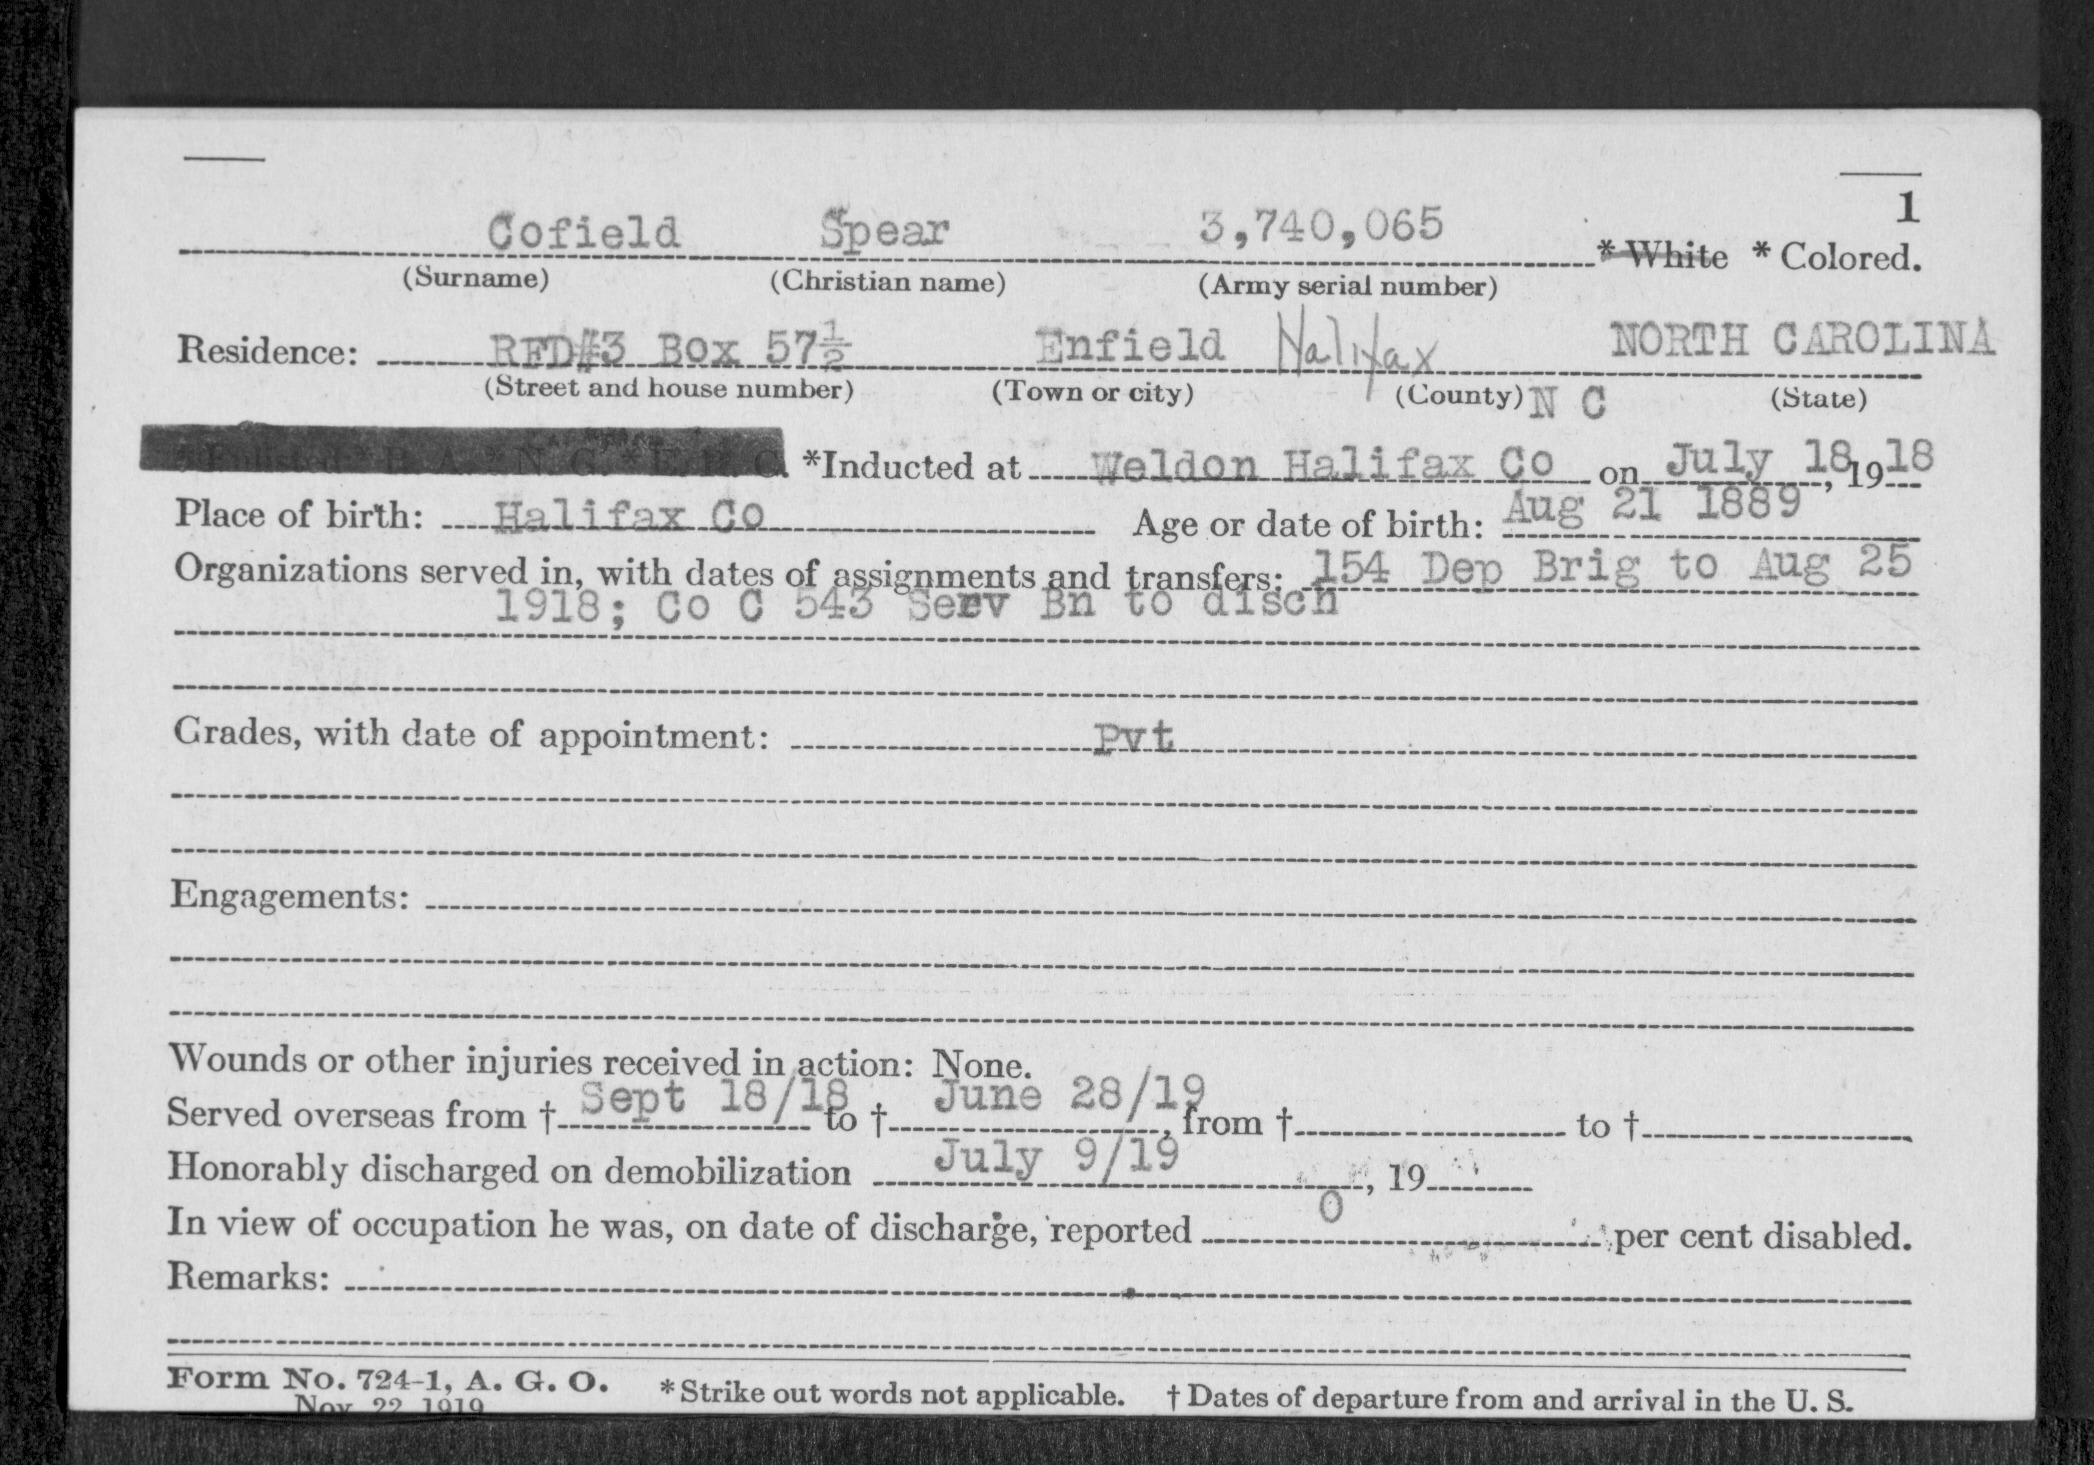 1
Cofield Spear 3,740,065 * White * Colored.
(Surname) (Christian name) (Army serial number)
Residence: RFD#3 Box 57½ Enfield Halifax NORTH CAROLINA
(Street and house number) (Town or city) (County) N C (State)
* Enlisted * R. A. * N. G. * E. R. C. *Inducted at Weldon Halifax Co on July 18, 1918
Place of birth: Halifax Co Age or date of birth: Aug 21 1889
Organizations served in, with dates of assignments and transfers: 154 Dep Brig to Aug 25
1918; Co C 543 Serv Bn to disch
Grades, with date of appointment: Pvt
Engagements:
Wounds or other injuries received in action: None.
Served overseas from † Sept 18/18 to † June 28/19, from † to †
Honorably discharged on demobilization July 9/19, 19
In view of occupation he was, on date of discharge, reported 0 per cent disabled.
Remarks:
Form No. 724-1, A. G. O. *Strike out words not applicable. † Dates of departure from and arrival in the U. S.
Nov. 22, 1919